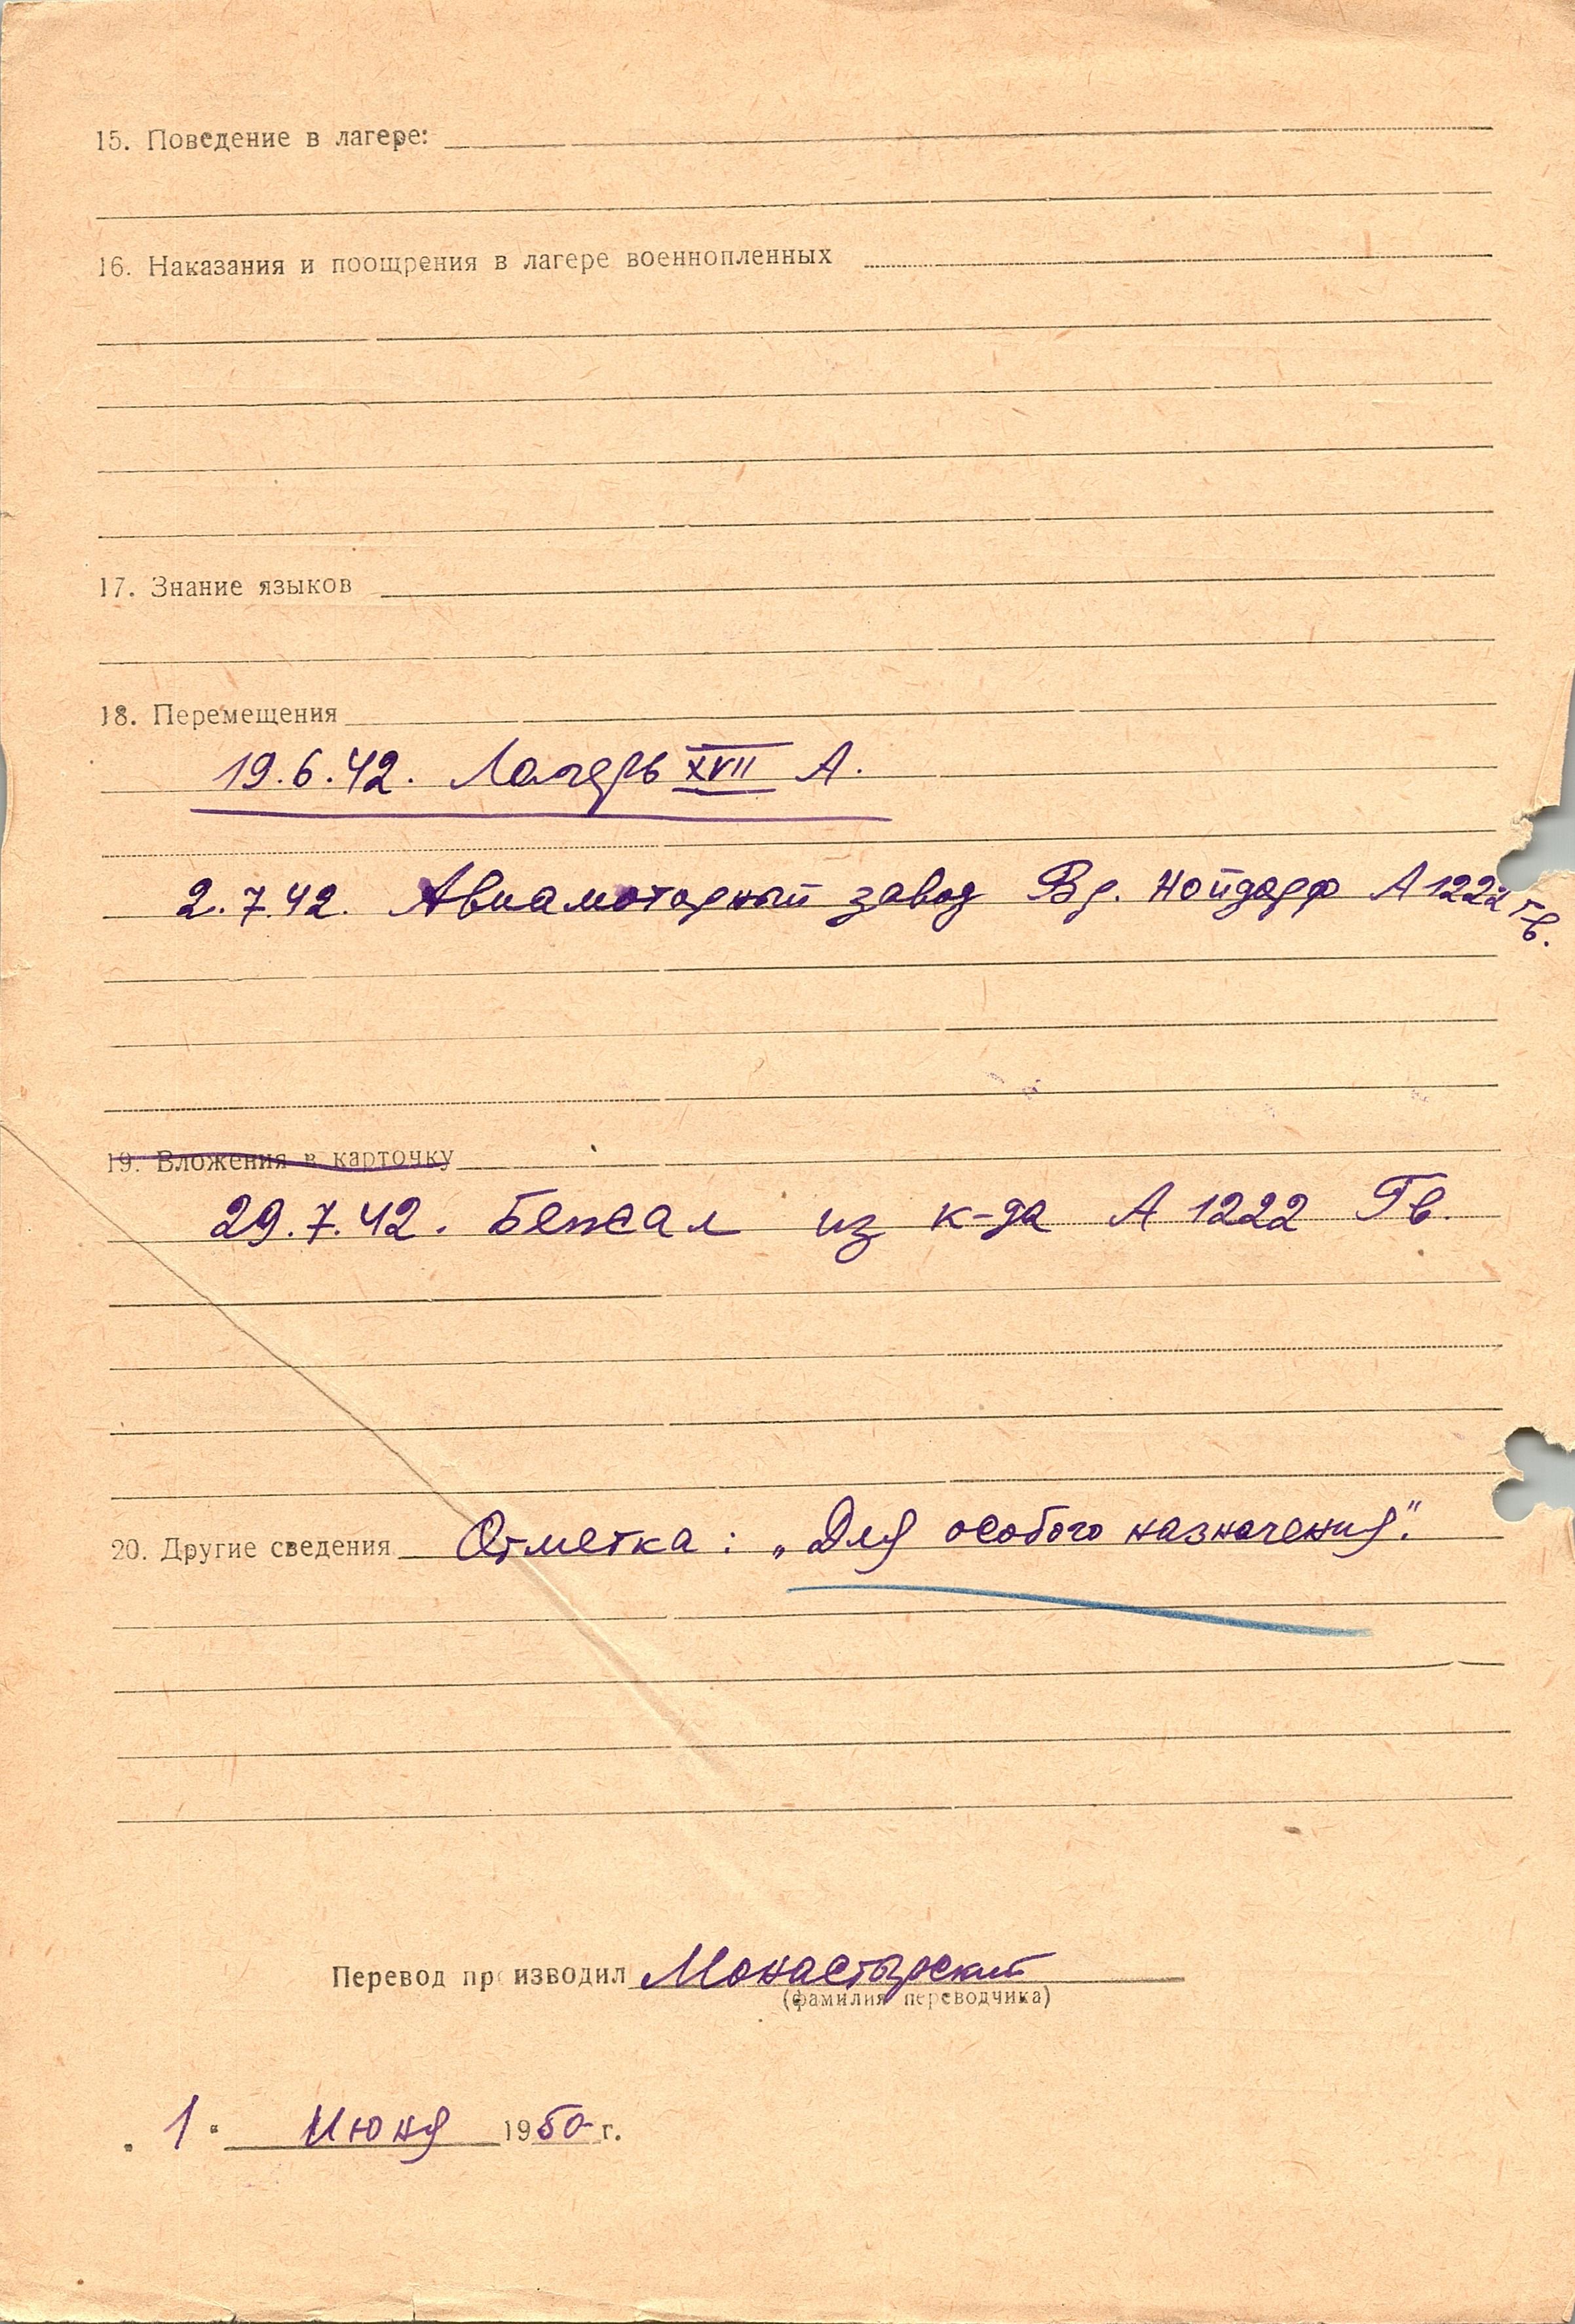 15. Поведение в лагере:
16. Наказания и поощрения в лагере военнопленных
17. Знание языков
18. Перемещения
19.6.42. Лагерь XVII А.
2.7.42. Авиамоторный завод Вр. Нойдорф А 1222 Гв.
19. Вложения в карточку
29.7.42. Бежал из к-да А 1222 Гв.
20. Другие сведения Отметка: „Для особого назначения".
Перевод производил Монастырский
(фамилия переводчика)
„1" Июня 1950 г.